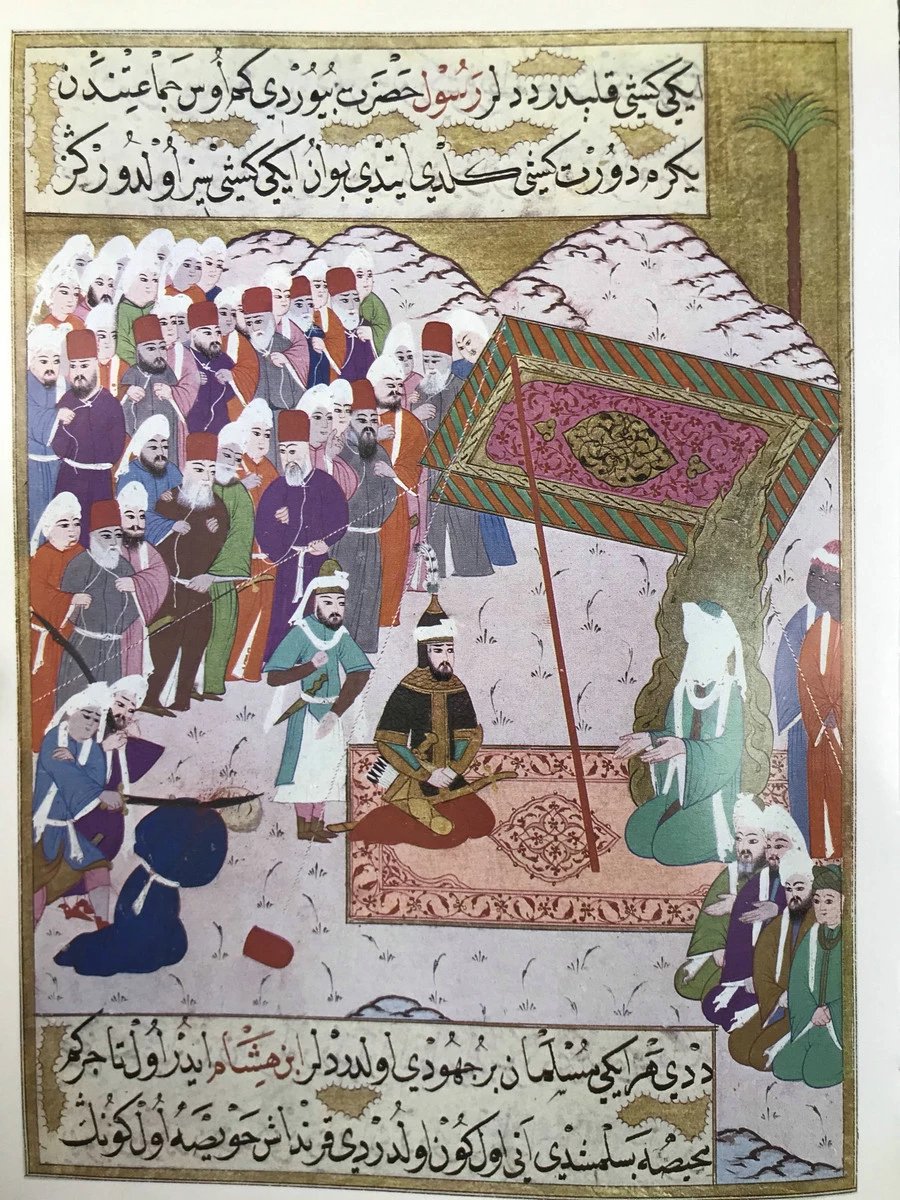 ایکی کیشی قلبدرددلر رَسُولْ حَضْرَت بُیُورْدِي کِم اُوس جَمَاعَتِنْدَنْ
یکره دورْت کیشی کلدي ایتدي بوان ایکی کیشی سِز اُولْدُورکز
ددي هَر ایکی مُسْلمان بر جهودي اولدردلر ابن هِشَام ایدر اول تاجر کم
محیصه بَسلمشدي اَنی اول کون اولدردي قرنداش حویصه اول کونك